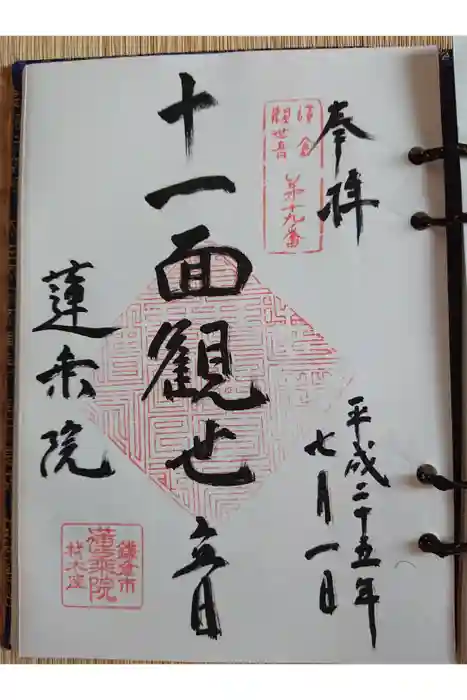 奉拝
鎌倉
観世音
第十九番
十一面観世音
平成二十五年
七月一日
蓮乗院
鎌倉市
蓮乗院
材木座